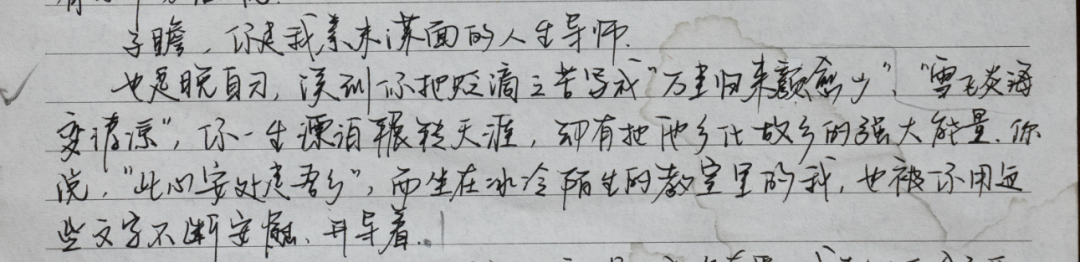 子瞻，你是我素未谋面的人生导师.
也是晚自习，读到你把贬谪之苦写成“万里归来颜愈少”、“雪飞炎海
变清凉”，你一生漂泊辗转天涯，却有把他乡化故乡的强大能量.你
说，“此心安处是吾乡”，而坐在冰冷陌生的教室里的我，也被你用这
些文字不断安慰、开导着..